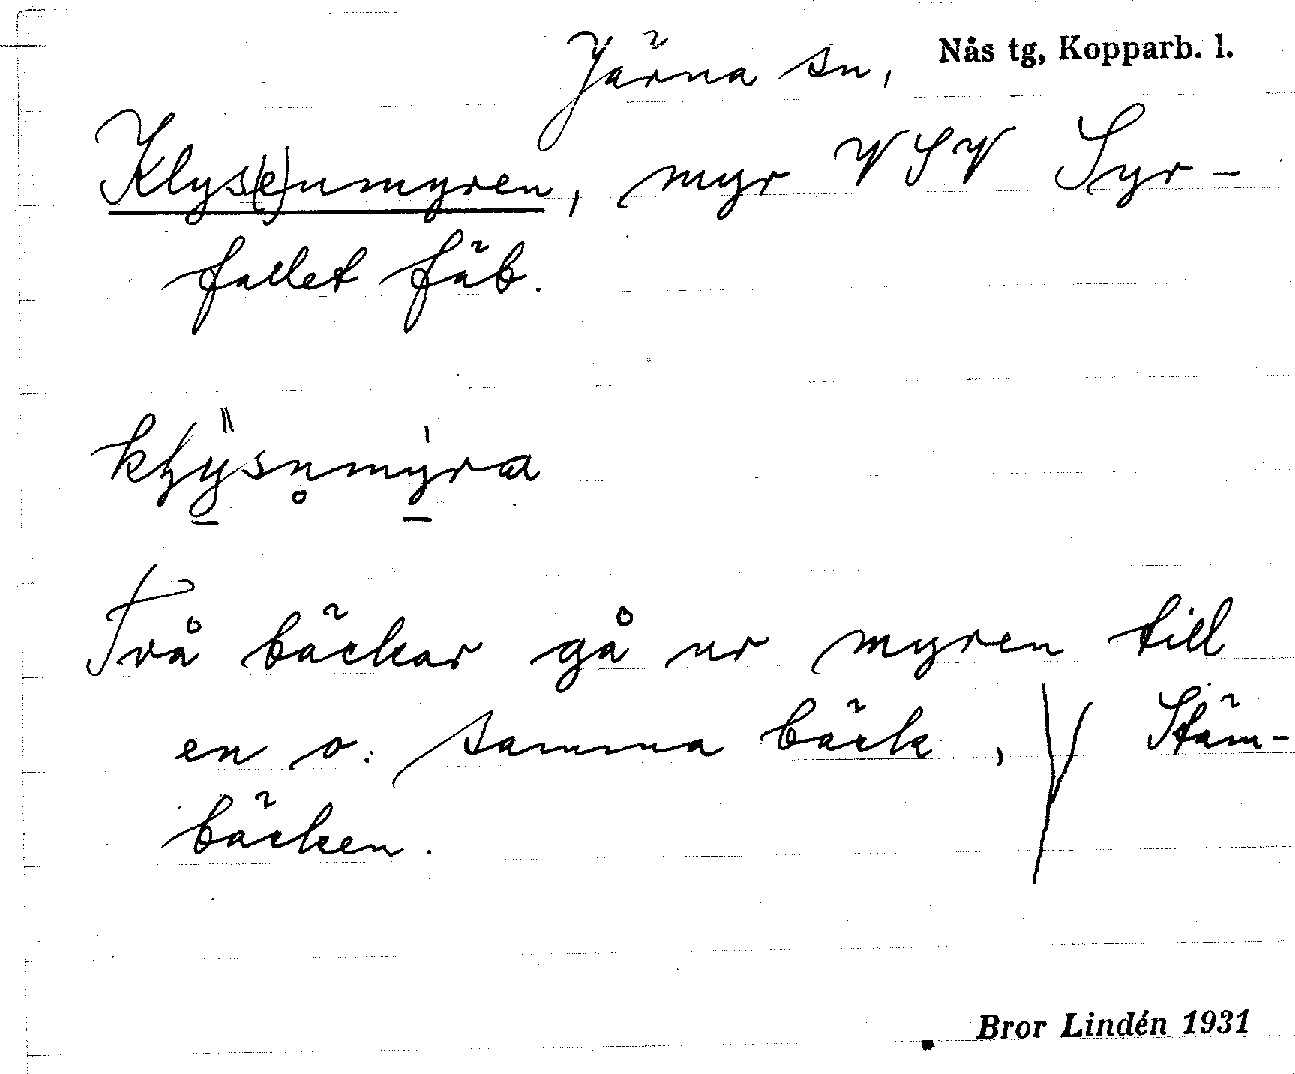 Järna sn, Nås tg, Kopparb. l.
Klys(e)nmyren, myr VSV Syr-
fallet fäb.
Två bäckar gå ur myren till
en o. samma bäck, Stäm-
bäcken.
Bror Lindén 1931